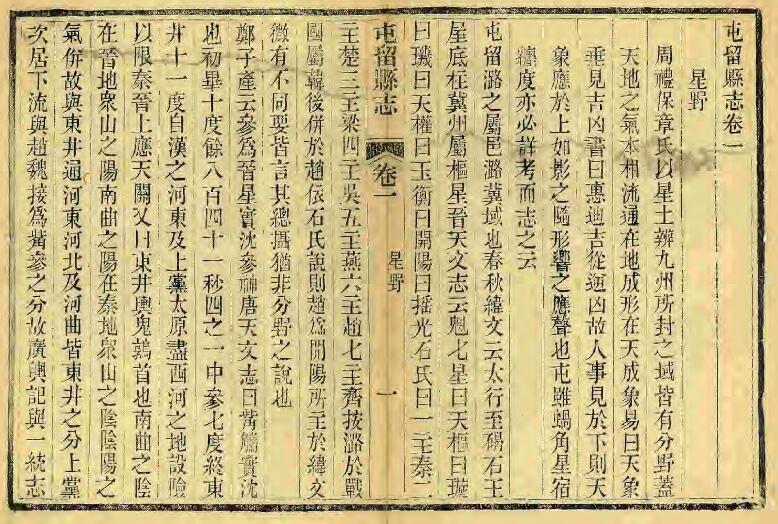 屯留縣志卷一
星野
周禮保章氏以星土辨九州所封之域皆有分野蓋
天地之氣本相流通在地成形在天成象易曰天象
垂見吉凶書曰惠迪吉從逆凶故人事見於下則天
象應於上如影之隨形響之應聲也屯雖蝸角星宿
纏度亦必詳考而志之云
屯留潞之屬邑潞冀域也春秋緯文云太行至碣石王
屋底柱冀州屬樞星晉天文志云魁七星曰天樞曰璇
曰璣曰天權曰玉衡曰開陽曰搖光石氏曰一主秦二
屯留縣志
卷一
星野
一
主楚三主梁四主吳五主燕六主趙七主齊按潞於戰
國屬韓後併於趙依石氏說則趙爲開陽所主於緯文
微有不同要皆言其總攝猶非分野之說也
鄭子產云參爲晉星實沈參神唐天文志曰觜觿實沈
也初畢十度餘八百四十一秒四之一中參七度終東
井十一度自漢之河東及上黨太原盡西河之地設險
以限秦晉上應天關又曰東井輿鬼鶉首也南曲之陰
在晉地衆山之陽南曲之陽在秦地衆山之陰陰陽之
氣併故與東井通河東河北及河曲皆東井之分上黨
次居下流與趙魏接爲觜參之分故廣輿記與一統志